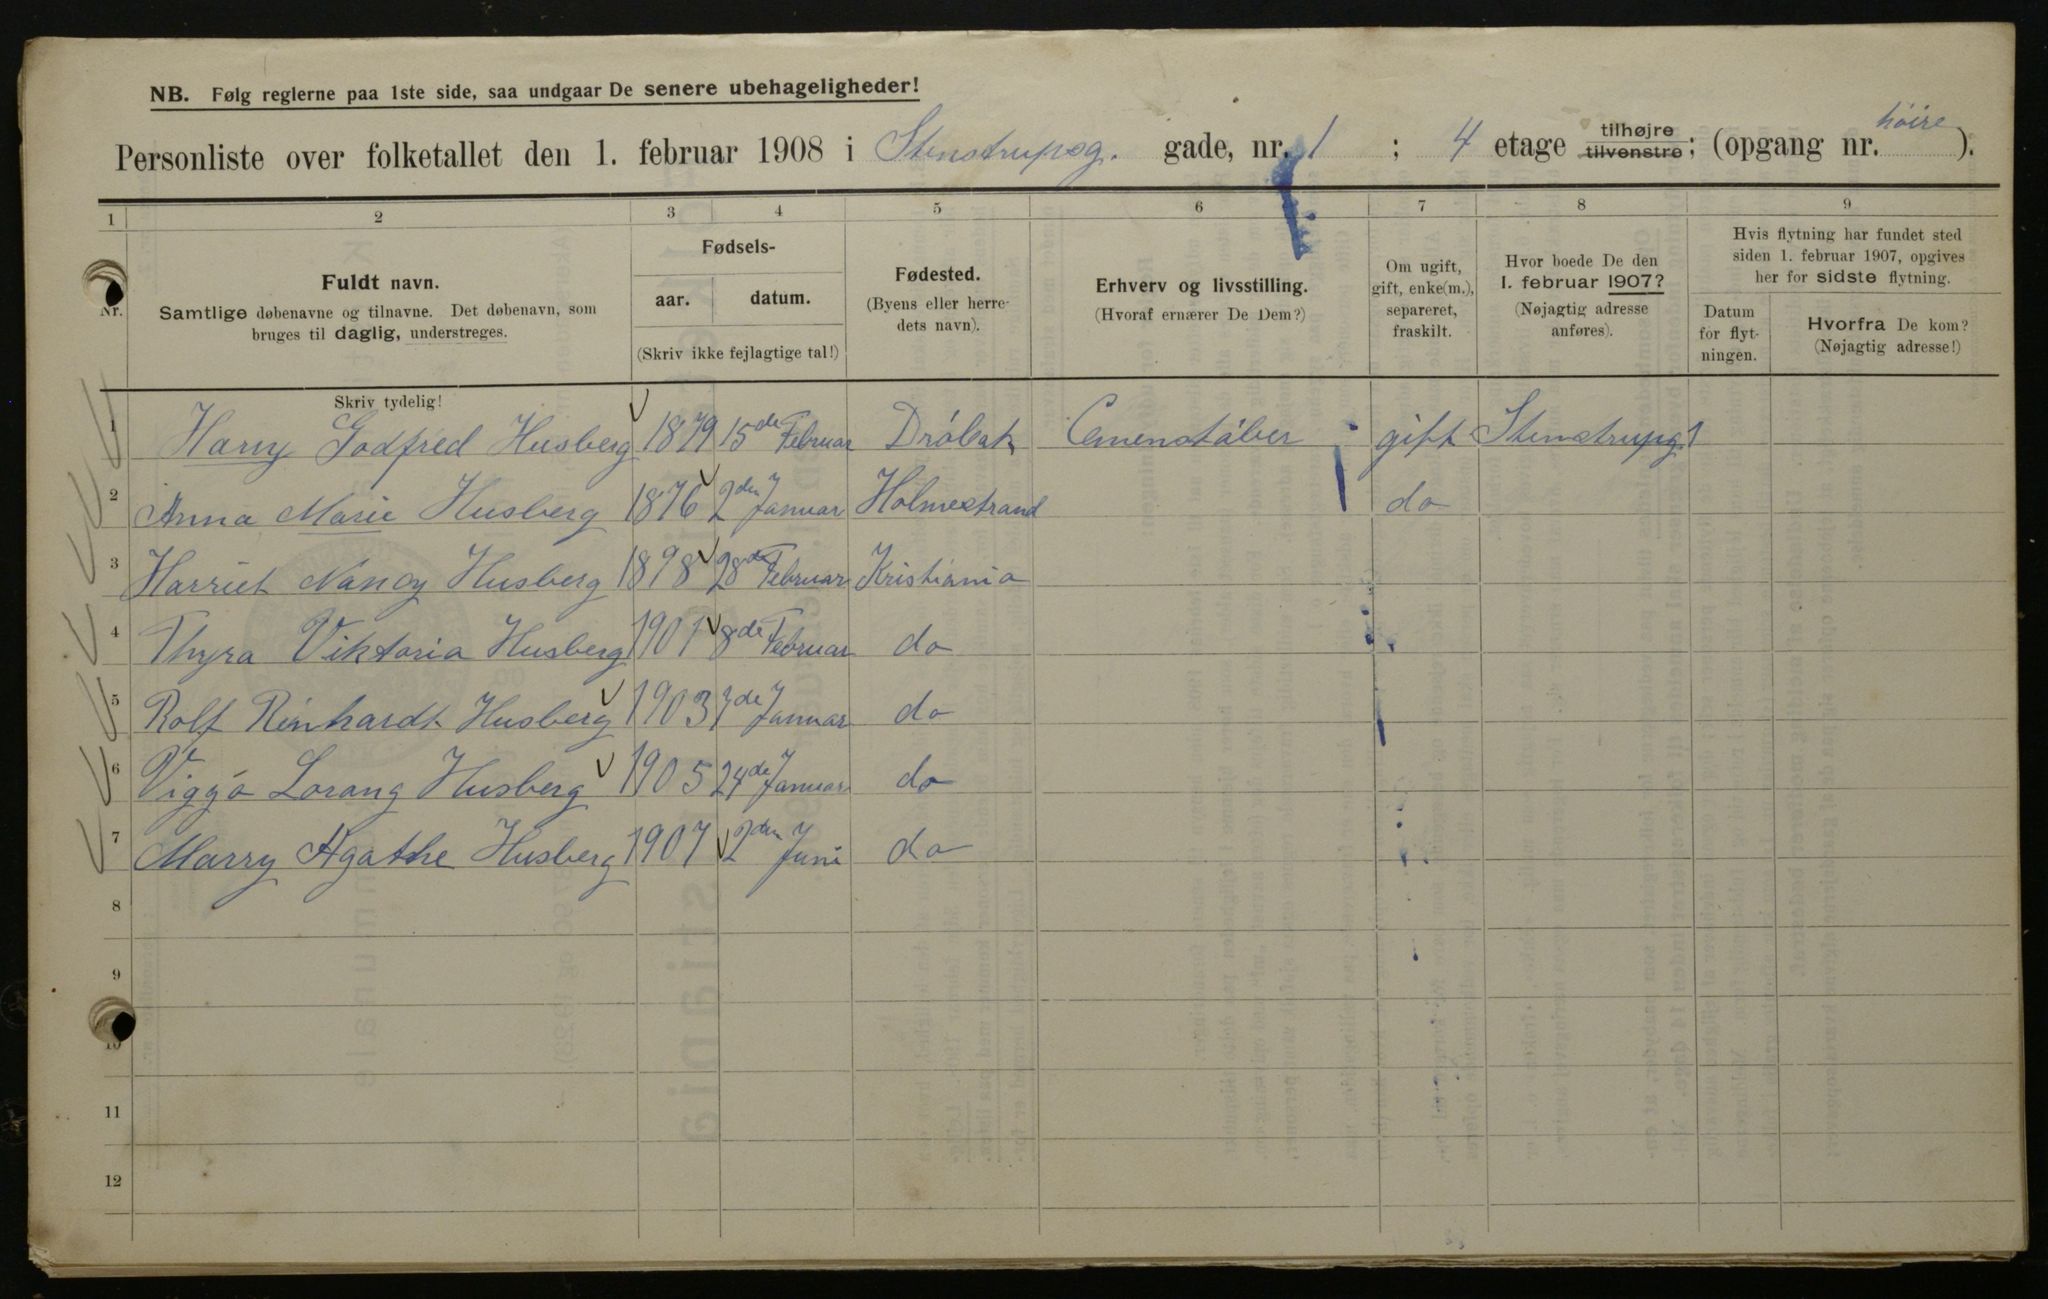 NB. Følg reglerne paa 1ste side, saa undgaar De senere ubehageligheder!
Personliste over folketallet den 1. februar 1908 i Stenstrupsg. gade, nr. 1 ; 4 etage tilhøjre tilvenstre; (opgang nr. høire ).
1 2 3 4 5 6 7 8 9
Nr.
Fuldt navn.
Samtlige døbenavne og tilnavne. Det døbenavn, som
bruges til daglig, understreges.
Skriv tydelig!
Fødsels-
aar. datum.
(Skriv ikke fejlagtige tal!)
Fødested.
(Byens eller herre-
dets navn).
Erhverv og livsstilling.
(Hvoraf ernærer De Dem?)
Om ugift,
gift, enke(m.),
separeret,
fraskilt.
Hvor boede De den
1. februar 1907?
(Nøjagtig adresse
anføres).
Hvis flytning har fundet sted
siden 1. februar 1907, opgives
her for sidste flytning.
Datum
for flyt-
ningen.
Hvorfra De kom?
(Nøjagtig adresse!)
1 Harry Godfred Husberg 1879 15de Februar Dröbak Cemenstøber gift Stenstrupg 1
2 Anna Marie Husberg 1876 2den Januar Holmestrand do
3 Harriet Nancy Husberg 1898 28de Februar Kristiania
4 Thyra Viktoria Husberg 1901 8de Februar do
5 Rolf Reinhardt Husberg 1903 7de Januar do
6 Viggo Lorang Husberg 1905 24de Januar do
7 Marry Agathe Husberg 1907 2den Juni do
8
9
10
11
12